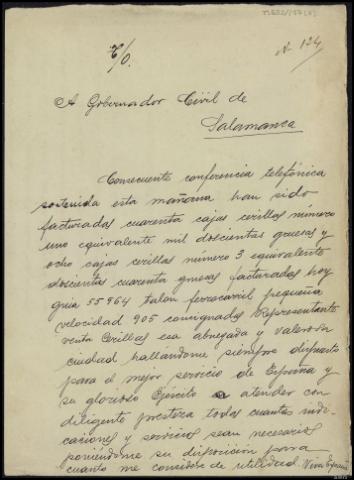 T/O.
Nº 134
A Gobernador Civil de
Salamanca
Consecuente conferencia telefónica
sostenida esta mañana han sido
facturadas cuarenta cajas cerillas número
uno equivalente mil doscientas gruesas y
ocho cajas cerillas número 3 equivalente
doscientas cuarenta gruesas facturadas hoy
guia 55964 talon ferrocarril pequeña
velocidad 905 consignadas Representante
venta Cerillas esa abnegada y valerosa
ciudad hallandome siempre dispuesto
para el mejor servicio de España y
su glorioso Ejército a atender con
diligente presteza todas cuantas indi-
caciones y servicios sean necesarios
poniendome su disposición para
cuanto me considere de utilidad. Viva España